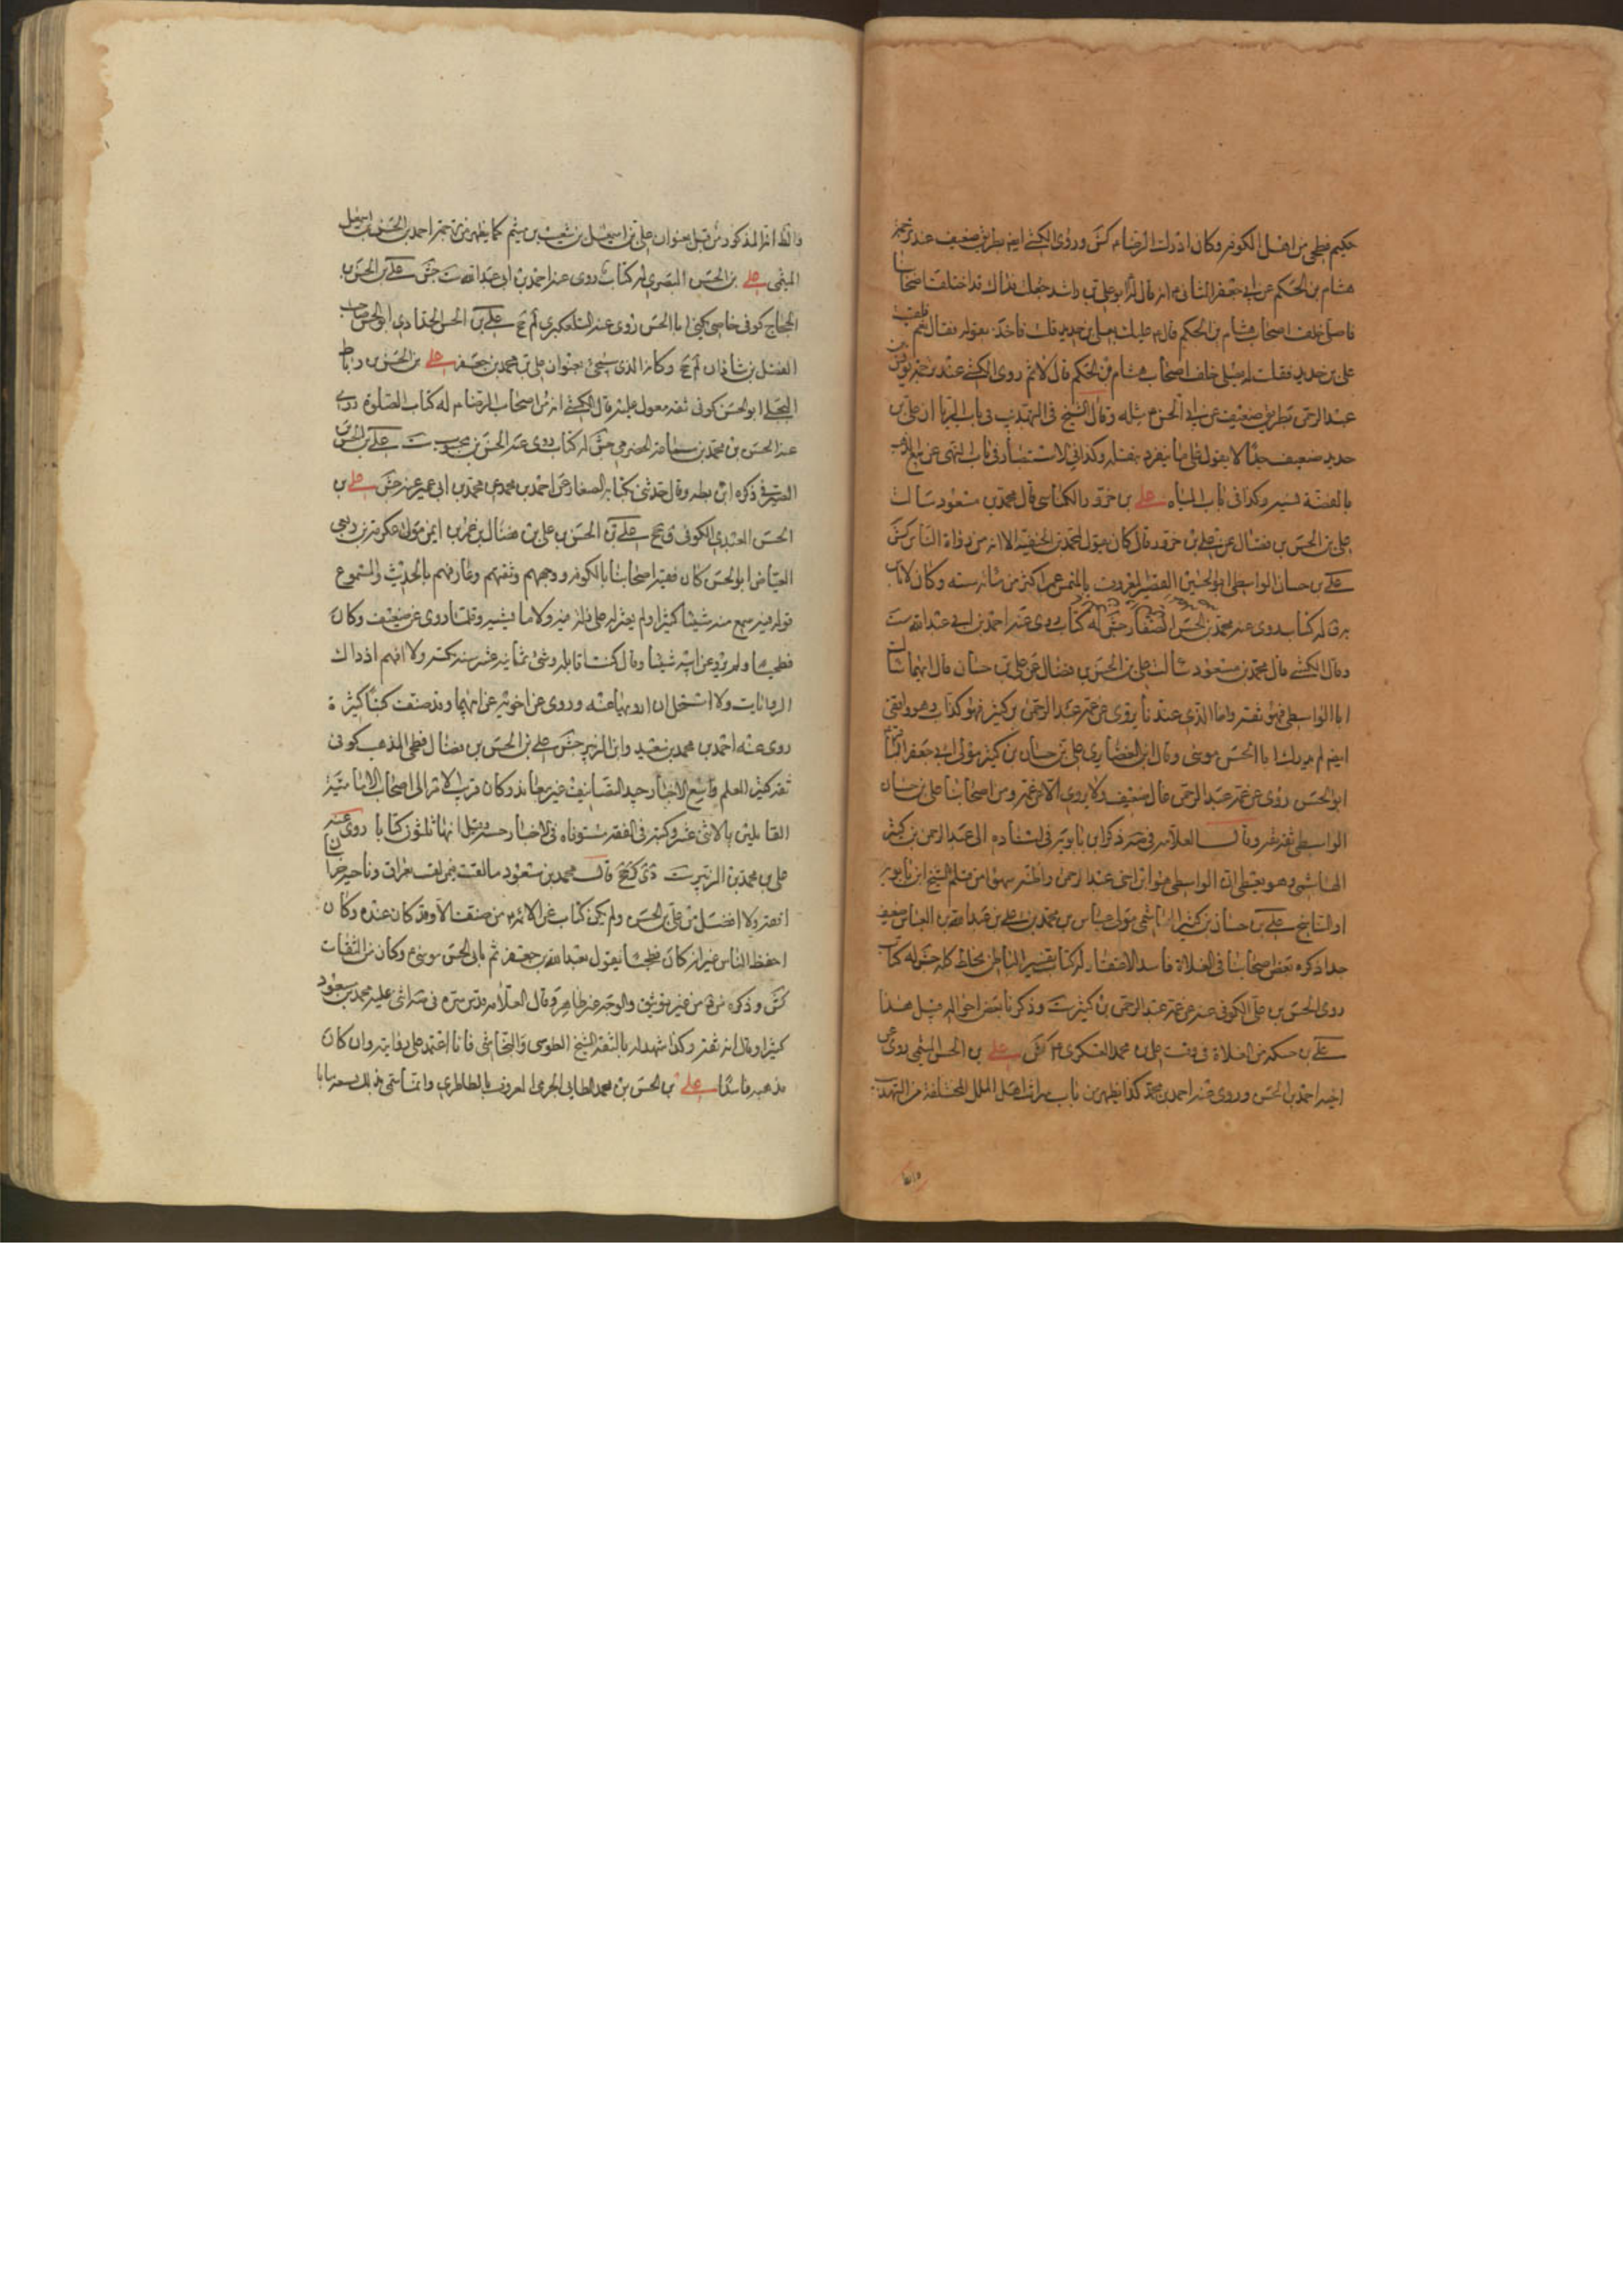 حكيم فطحي من اهل الكوفه وكان ادرك الرضا م كش وروى الكشي ايضا بطريق ضعيف عند ترجمة
هشام بن الحكم عن ابي جعفر الثاني م انه قال لابو علي بن راشد جعلت فداك قد اختلف اصحابنا
فاصلي خلف اصحاب هشام بن الحكم قال م عليك بعلي بن حديد قلت فاخذ بقوله فقال نعم فلقيت
علي بن حديد فقلت له نصلي خلف اصحاب هشام بن الحكم قال لا ثم روى الكشي عند ترجمة يونس بن
عبد الرحمن بطريق ضعيف عن ابي الحسن م مثله وقال الشيخ في التهذيب في باب الربا ان علي بن
حديد ضعيف جدا لا يعول على ما ينفرد بنقله وكذا في الاستبصار في باب النهي عن بيع الذهب
بالفضة نسيه وكذا في باب المياه علي بن حزور الكناسي قال محمد بن مسعود سالت
علي بن الحسن بن فضال عن علي بن حزور قال كان يقول بمحمد بن الحنفيه الا انه من رواة الناس كش
علي بن حسان الواسطي ابو الحسين القصير المعروف بالمنمس عمر اكثر من مائة سنه وكان لا باس
به له كتاب روى عنه محمد بن الحسن الصفار جش له كتاب روى عنه احمد بن ابي عبد الله ست
وقال الكشي قال محمد بن مسعود سالت علي بن الحسن بن فضال عن علي بن حسان قال ايهما سالت
اما الواسطي فهو ثقه واما الذي عندنا يروى عن عمه عبد الرحمن بن كثير فهو كذاب وهو واقفي
ايضا لم يدرك ابا الحسن موسى وقال ابن الغضايري علي بن حسان بن كثير مولى ابي جعفر الباقر م
ابو الحسن روى عن عمه عبد الرحمن غال ضعيف ولا يروى الا عن عمه ومن اصحابنا علي بن حسان
الواسطي ثقه ثقه وقال العلامه قدس سره ذكر ابن بابويه في اسناده الى عبد الرحمن بن كثير
الهاشمي وهو يعطي ان الواسطي هو ابن اخي عبد الرحمن واظنه سهوا من قلم الشيخ ابن بابويه
او الناسخ علي بن حسان بن كثير الهاشمي مولى عباس بن محمد بن علي بن عبد الله بن العباس ضعيف
جدا ذكره بعض اصحابنا في الغلاة فاسد الاعتقاد له كتاب تفسير الباطن تخليط كله جش له كتاب
روى الحسن بن علي الكوفي عنه عن عمه عبد الرحمن بن كثير ست وذكرنا بعض احواله قبل هذا
علي بن حسكه من الغلاة في وقت علي بن محمد العسكري م كش علي بن الحسن الميثمي روى عن
اخيه احمد بن الحسن وروى عنه احمد بن محمد كذا يظهر من باب ميراث اهل الملل المختلفة من التهذيب
والظ
والظ انه المذكور من قبل بعنوان علي بن اسمعيل بن شعيب بن ميثم كما يظهر من ترجمة احمد بن الحسن بن اسمعيل
الميثمي علي بن الحسن البصري له كتاب روى عنه احمد بن ابي عبد الله ست جش علي بن الحسن بن
الحجاج كوفي خاصي يكنى ابا الحسن روى عنه التلعكبري لم جخ علي بن الحسن الحدادي ابو الحسن صاحب
الفضل بن شاذان لم جخ وكانه الذي سيجي بعنوان علي بن محمد بن جعفر علي بن الحسن بن رباط
البجلي ابو الحسن كوفي ثقه معول عليه قال الكشي انه من اصحاب الرضا م له كتاب الصلوة روى
عنه الحسن بن محمد بن سماعه الحضرمي جش له كتاب روى عنه الحسن بن محبوب ست علي بن الحسن
الصيرفي ذكره ابن بطه وقال حدثني بكتابه الصفار عن احمد بن محمد عن محمد بن ابي عمير عنه جش علي بن
الحسن العبدي الكوفي ق جخ علي بن الحسن بن علي بن فضال بن عمر بن ايمن مولى عكرمه بن ربعي
الفياض ابو الحسن كان فقيه اصحابنا بالكوفه ووجههم وثقتهم وعارفهم بالحديث والمسموع
قوله فيه سمع منه شيئا كثيرا ولم يعثر له على زلة فيه ولا ما يشينه وقلما روى عن ضعيف وكان
فطحيا ولم يرو عن ابيه شيئا وقال كنت اقابله وسني ثمانية عشر سنه بكتبه ولا افهم اذ ذاك
الروايات ولا استحل ان ارويها عنه وروى عن اخويه عن ابيهما وقد صنف كتبا كثيرة
روى عنه احمد بن محمد بن سعيد وابن الزبير جش علي بن الحسن بن فضال فطحي المذهب كوفي
ثقه كثير العلم واسع الاخبار جيد التصانيف غير معاند وكان قريب الامر الى اصحابنا الاماميه
القايلين بالاثني عشر وكتبه في الفقه مستوفاه في الاخبار حسنة وقيل انها ثلثون كتابا روى عنه
علي بن محمد بن الزبير ست دي كر جخ قال محمد بن مسعود ما لقيت فيمن لقيت بعراق وناحية خراسان
افقه ولا افضل من علي بن الحسن ولم يكن كتاب عن الائمة م من صنف الا وقد كان عنده وكان
احفظ الناس غير انه كان فطحيا يقول بعبد الله بن جعفر ثم بابي الحسن موسى م وكان من الثقات
كش وذكره مرة من غير توثيق والوجه غير ظاهر وقال العلامه قدس سره في صه اثنى عليه محمد بن مسعود
كثيرا وقال انه ثقه وكذا شهد له بالثقه الشيخ الطوسي والنجاشي فانا اعتمد على روايته وان كان
مذهبه فاسدا علي بن الحسن بن محمد الطايي الجرمي المعروف بالطاطري وانما سمي بذلك لبيعه ثيابا